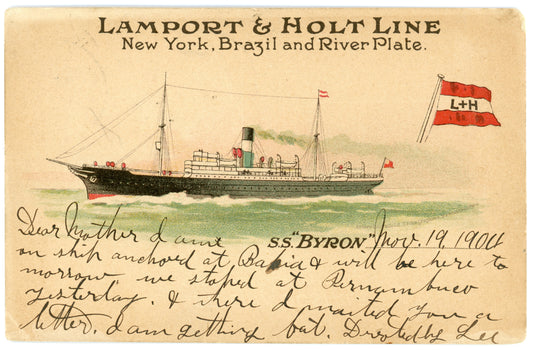 LAMPORT & HOLT LINE
New York, Brazil and River Plate.
L+H
S.S. "BYRON" Nov. 19, 1904
Dear Mother I am
on ship anchored at Bahia & will be here to
morrow we stoped at Pernambuco
yesterday. & there I maited you a
letter. I am getting fat. Devotedly Lee